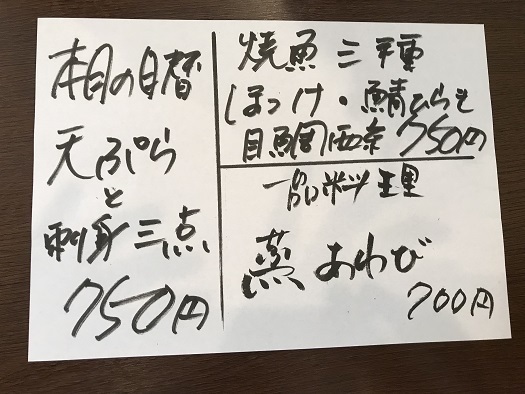 本日の日替
天ぷら
と
刺身三点
750円
焼魚三種
ほっけ・鯖ひらき
目鯛西京 750円
一品料理
蒸あわび
700円